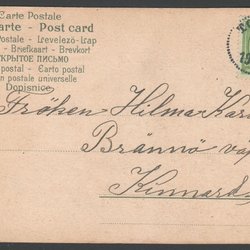 Carte Postale
arte - Post card
Postale - Levelező-Lap
- Briefkaart - Brevkort
ТКРЫТОЕ ПИСЬМО
postal - Carto postal
on postale universelle
Dopisnice
Fröken Hilma Kar
Brännö va
Kinnard